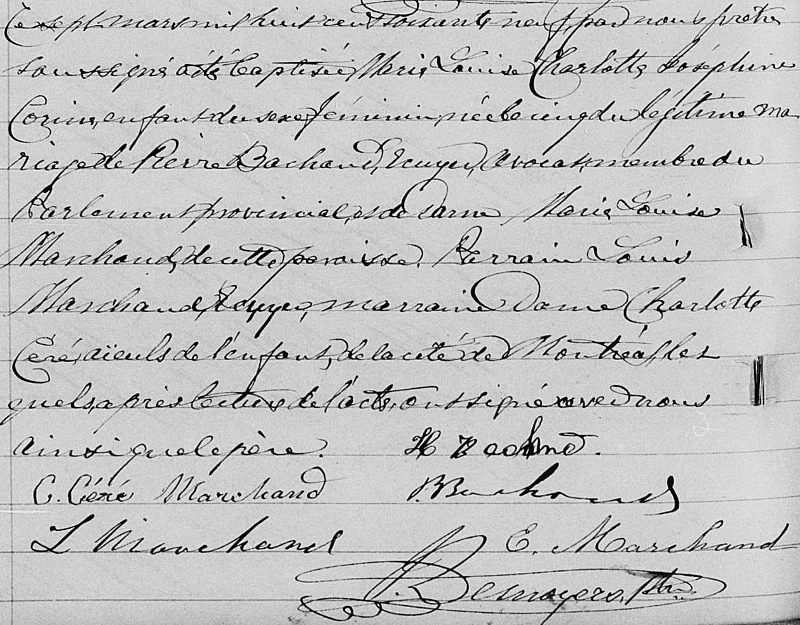 Ce sept mars mil huit cent soixante neuf, par nous prêtre
soussigné a été baptisée Marie Louise Charlotte Joséphine
Corine, enfant du sexe féminin, née le cinq du légitime ma-
riage de Pierre Bachand, Ecuyer, Avocat, membre du
Parlement provincial, et de dame Marie Louise
Marchand, de cette paroisse. Parrain Louis
Marchand, Ecuyer, marraine Dame Charlotte
Céré, aïeuls de l'enfant, de la cité de Montréal, les
quels, après lecture de l'acte, ont signé avec nous
ainsi que le père.
C. Céré Marchand P. Bachand
L Marchand E. Marchand
Desnoyers, Ptre.